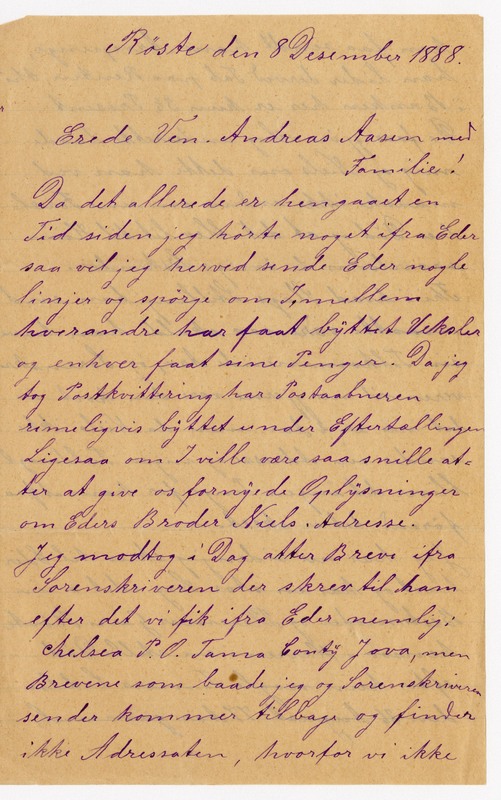 Röste den 8 Desember 1888.
Erede Ven. Andreas Aasen med
Familie!
Da det allerede er hengaaet en
Tid siden jeg hörte noget ifra Eder
saa vil jeg herved sende Eder nogle
linjer og spörge om I imellem
hverandre har faat byttet Veksler
og enhver faat sine Penger. Da jeg
tog Postkvittering har Postaabneren
rimeligvis byttet under Eftertællingen
Ligesaa om I ville være saa snille at-
ter at give os fornyede Oplysninger
om Eders Broder Niels. Adresse.
Jeg modtog i Dag atter Breve ifra
Sorenskriveren der skrev til ham
efter det vi fik ifra Eder nemlig:
Chelsea P.O. Tama Conty Jova, men
Brevene som baade jeg og Sorenskriveren
sender kommer tilbage og finder
ikke Adressaten, hvorfor vi ikke